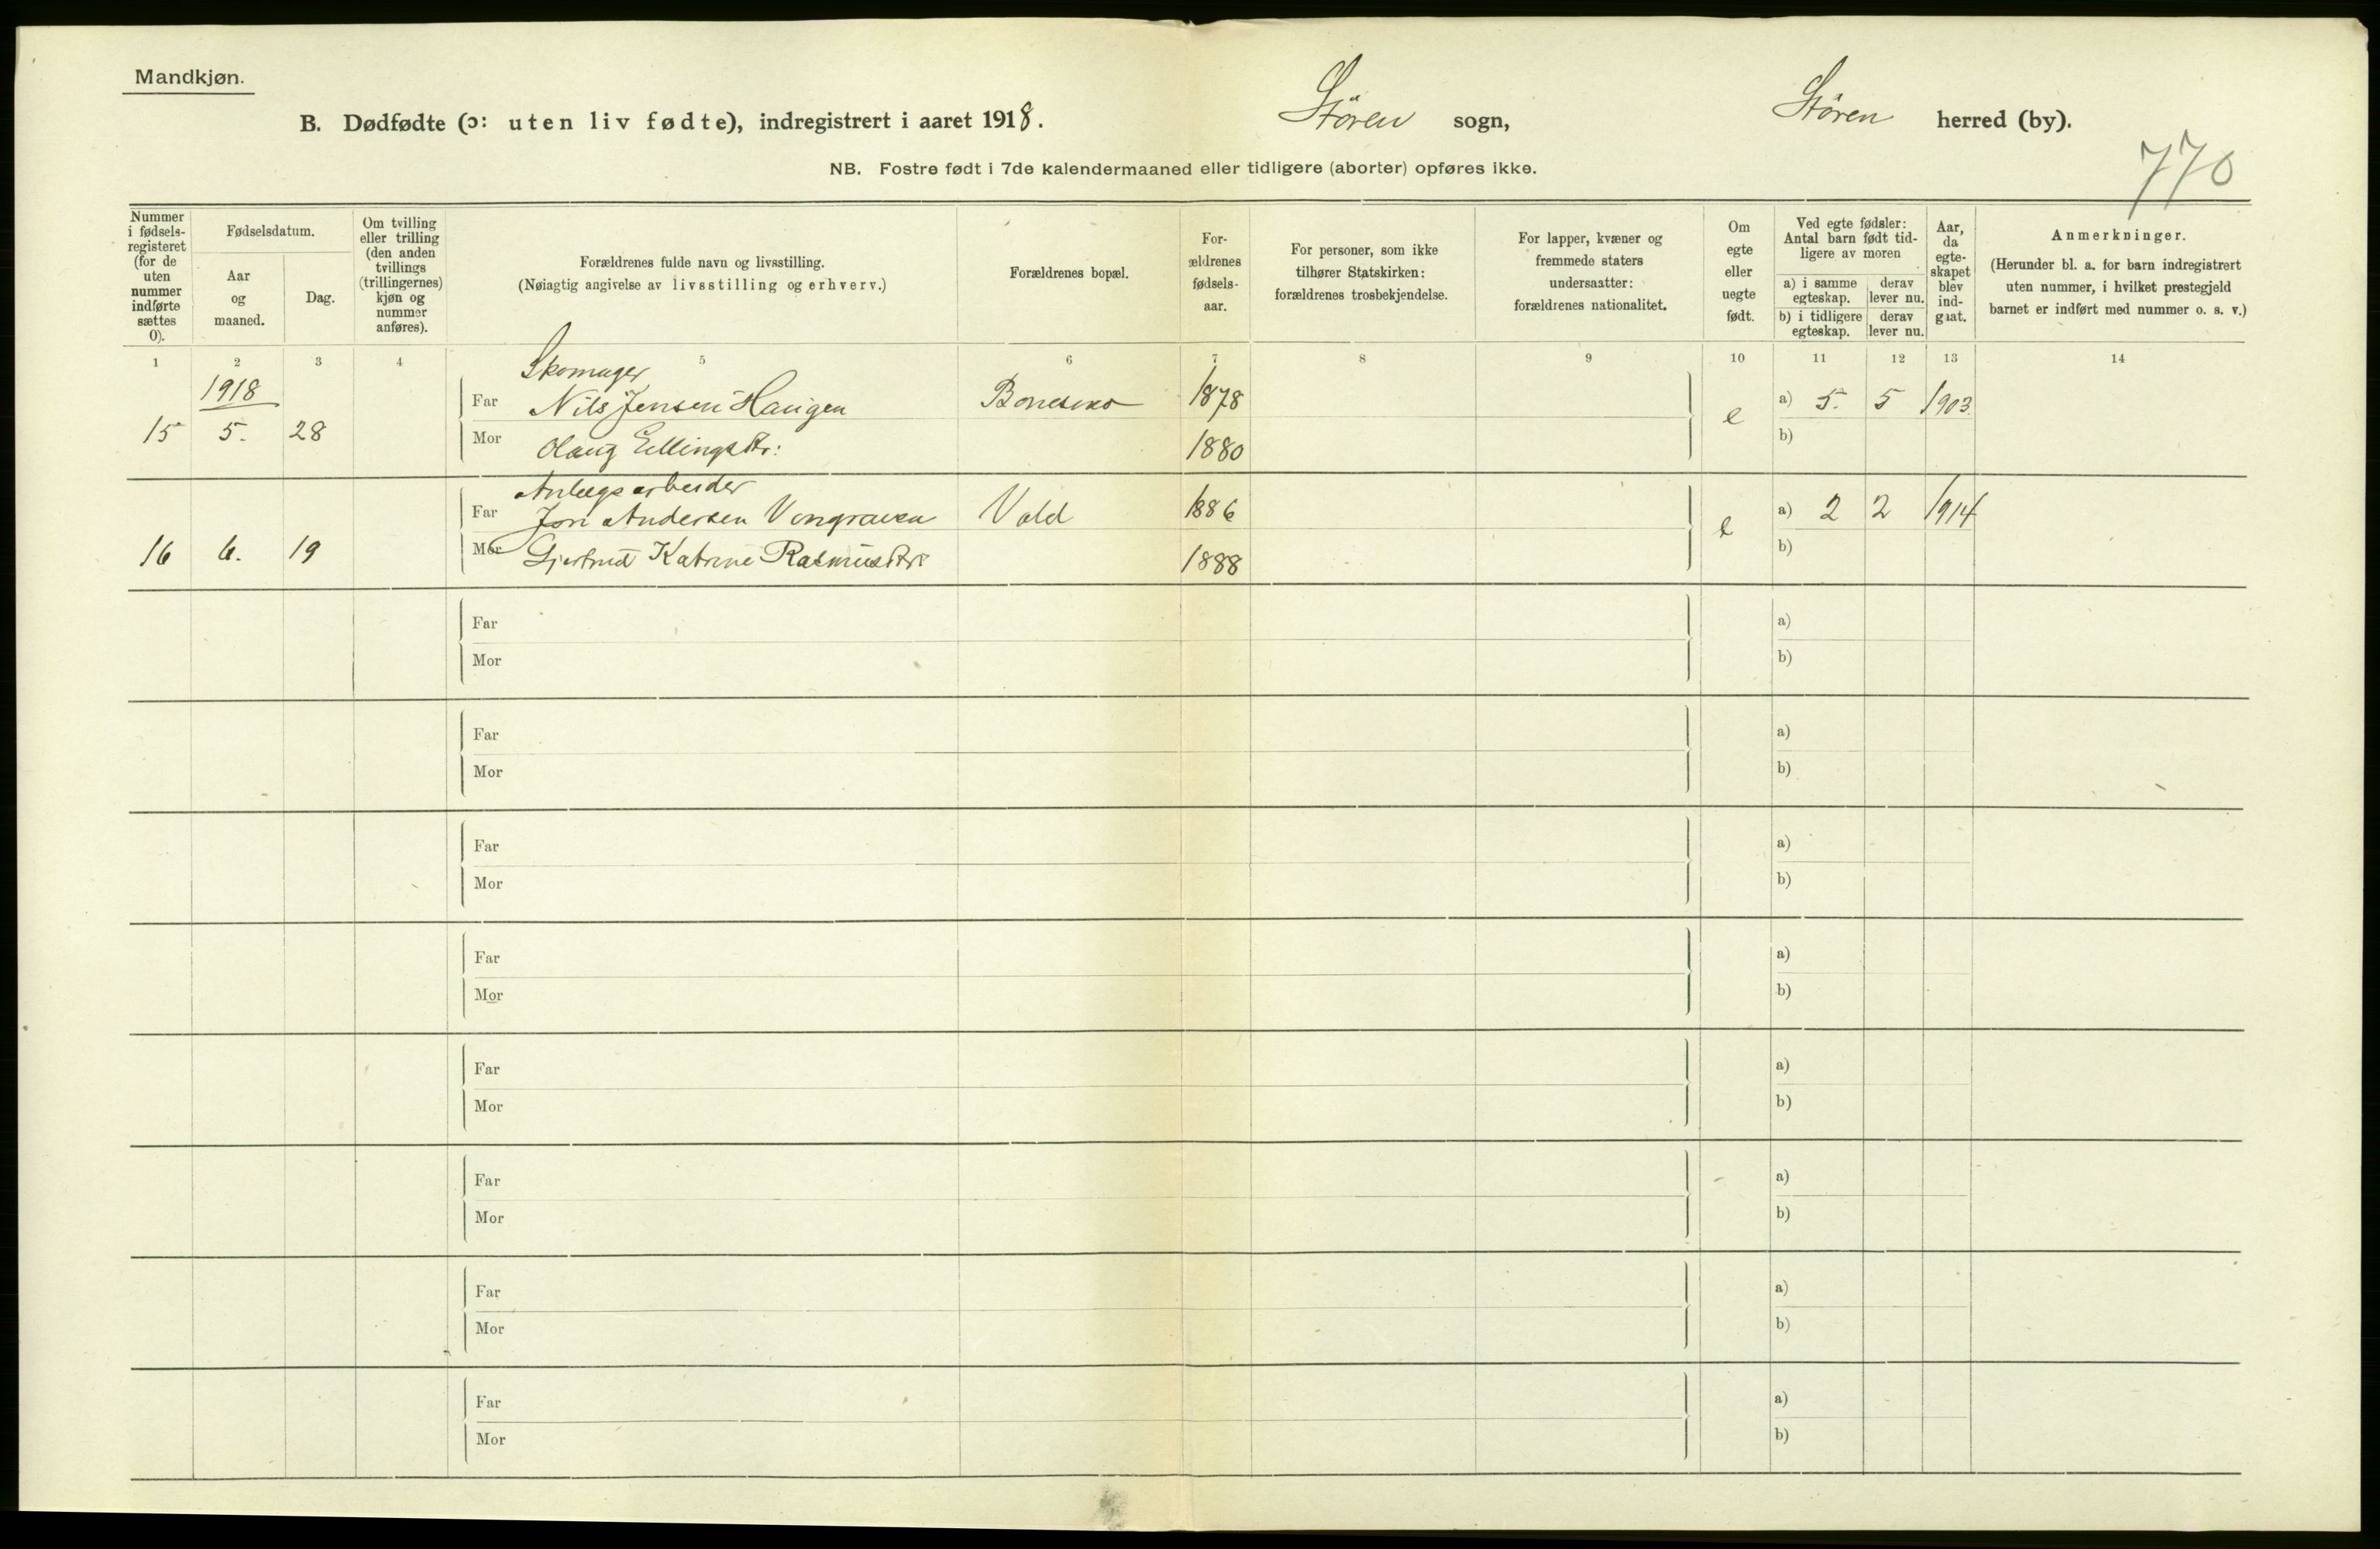 Mandkjøn.
B. Dødfødte (ɔ: uten liv fødte), indregistrert i aaret 1918. Stören sogn, Stören herred (by).
NB. Fostre født i 7de kalendermaaned eller tidligere (aborter) opføres ikke.
770
Nummer i fødsels-registeret (for de uten nummer indførte sættes 0).
Fødselsdatum.
Aar og maaned.
Dag.
Om tvilling eller trilling (den anden tvillings (trillingernes) kjøn og nummer anføres).
Forældrenes fulde navn og livsstilling.
(Nøiagtig angivelse av livsstilling og erhverv.)
Forældrenes bopæl.
For-ældrenes fødsels-aar.
For personer, som ikke tilhører Statskirken: forældrenes trosbekjendelse.
For lapper, kvæner og fremmede staters undersaatter: forældrenes nationalitet.
Om egte eller uegte født.
Ved egte fødsler: Antal barn født tid-ligere av moren
a) i samme egteskap.
derav lever nu.
b) i tidligere egteskap.
derav lever nu.
Aar, da egte-skapet blev ind-gaat.
Anmerkninger.
(Herunder bl. a. for barn indregistrert uten nummer, i hvilket prestegjeld barnet er indført med nummer o. s. v.)
1 2 3 4 5 6 7 8 9 10 11 12 13 14
1918
Skomager
Far Nils Jensen Haugen 1878 a) 5. 5 1903
15 5. 28 e
Mor Olaug Ellingsdtr: 1880 b)
Anlægsarbeider
Far Jon Andersen Vongraven Vold 1886 a) 2 2 1914
16 6. 19 e
Mor Gjertrud Katrine Rasmusdtr: 1888 b)
Far a)
Mor b)
Far a)
Mor b)
Far a)
Mor b)
Far a)
Mor b)
Far a)
Mor b)
Far a)
Mor b)
Far a)
Mor b)
Far a)
Mor b)